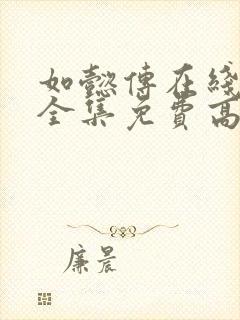 如懿傳在綫
全集免費高
廉晨